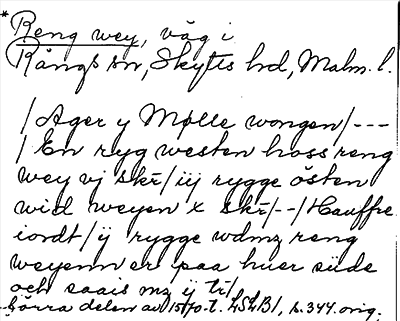 * Reng wey, väg i
Rångs sn, Skytts hd, Malm. l.
/Ager y Mølle wongen/---
/En ryg westen hoss reng
wey vj skr̄/iij rygge östen
wid weyen x skr̄/--/Hauffre
iordt/ij rygge wdmz reng
weyenn er paa huer siide
och saais mz ij tr̄/
Södra delen av 1570-t. LSLB1, s. 344. orig.